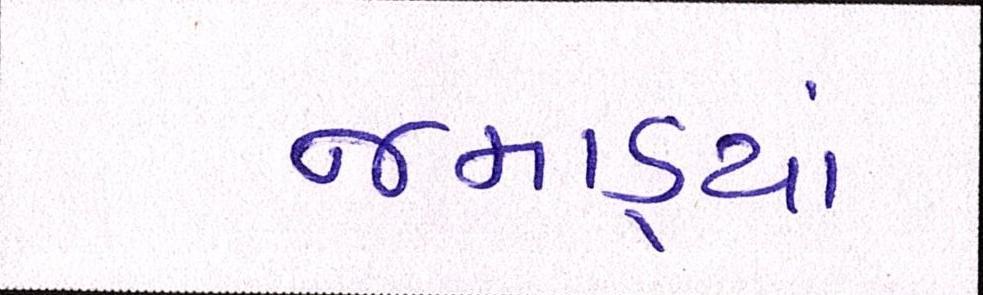 જમાડ્યાં